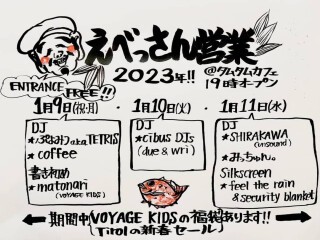 えべっさん営業
2023年!! @タムタムカフェ
19時オープン
ENTRANCE
FREE!!
1月9日(祝・月)・1月10日(火)・1月11日(水)
DJ
a.k.a TETRIS
★coffee
書き初め
★matonari
(VOYAGE KIDS)
DJ
★cibus DJs
(due & wri)
DJ
★SHIRAKAWA
(unsound)
★みっちゃん。
Silkscreen
★feel the rain
& security blanket
期間中VOYAGE KIDSの福袋あります!!
(Tirolの新春セール)